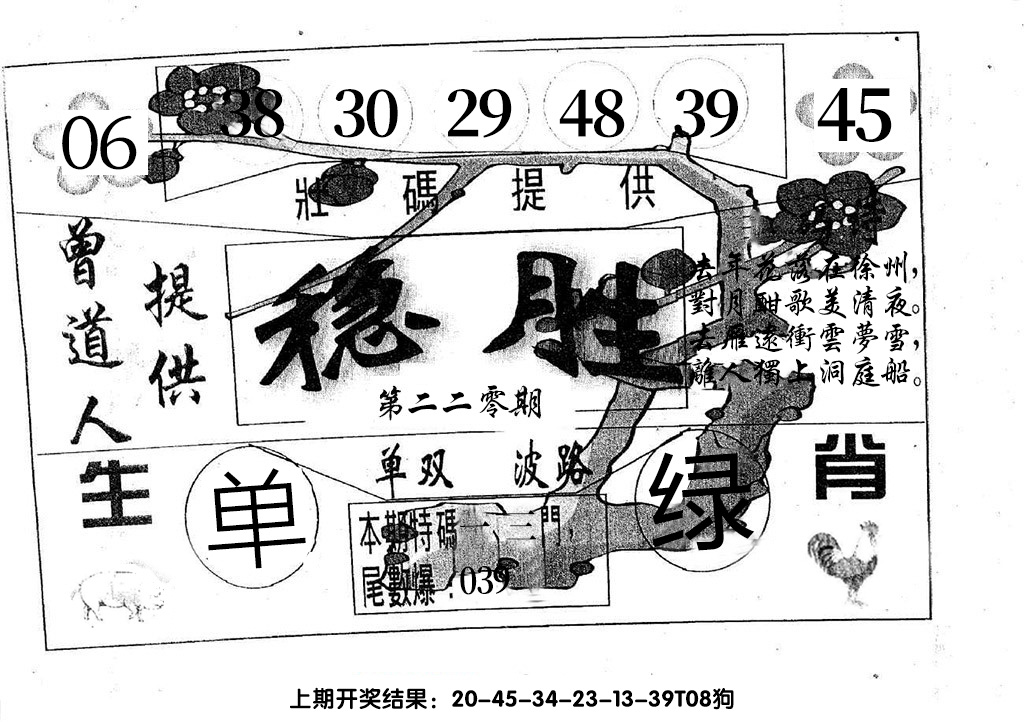 06 38 30 29 48 39 45
壯碼提供
特
曾道人
提供
稳胜
第二二零期
去年花落在徐州，
對月酣歌美清夜。
去雁遠衝雲夢雪，
離人獨上洞庭船。
单双 波路
生 肖
单 绿
本期特碼一、三門，
尾數爆：039
上期开奖结果：20-45-34-23-13-39T08狗